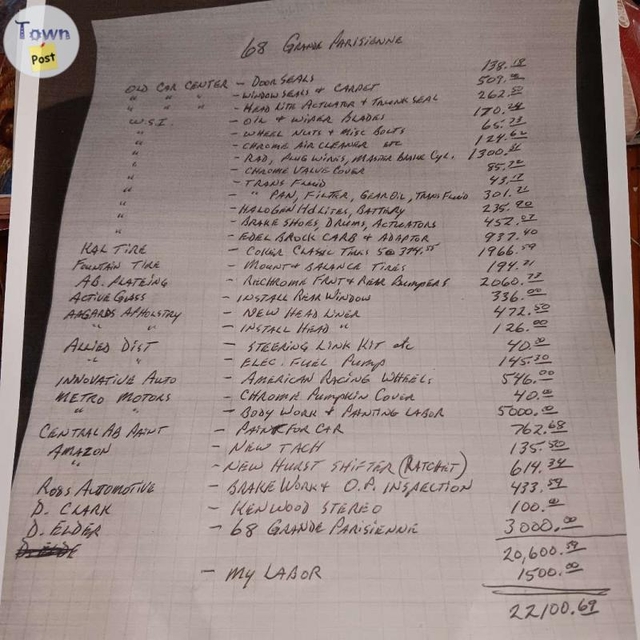 Town
Post
68 GRANDE PARISIENNE
OLD CAR CENTER - DOOR SEALS 138.18
" " " - WINDOW SEALS & CARPET 509.00
" " " - HEAD LITE ACTUATOR & TRUNK SEAL 262.50
W.S.I. - OIL & WIPER BLADES 170.24
" - WHEEL NUTS & MISC BOLTS 65.23
" - CHROME AIR CLEANER etc 124.62
" - RAD, PLUG WIRES, MASTER BRAKE CYL. 1300.
" - CHROME VALVE COVER 85.
" - TRANS FLUID 43.
" - " PAN, FILTER, GEAR OIL, TRANS FLUID 301.
" - HALOGEN HDLITES, BATTERY 235.90
" - BRAKE SHOES, DRUMS, ACTUATORS 452.
" - EDEL BROCK CARB & ADAPTOR 937.40
KAL TIRE - COKER CLASSIC TIRES 5@374.55 1966.59
FOUNTAIN TIRE - MOUNT & BALANCE TIRES 194.21
AB. PLATEING - RECHROME FRNT & REAR BUMPERS 2060.
ACTIVE GLASS - INSTALL REAR WINDOW 336.00
AAGARDS APHOLSTRY - NEW HEAD LINER 472.50
" " - INSTALL HEAD " 126.00
ALLIED DIST - STEERING LINK KIT etc 40.00
" " - ELEC. FUEL PUMP 145.20
INNOVATIVE AUTO - AMERICAN RACING WHEELS 546.00
METRO MOTORS - CHROME PUMPKIN COVER 40.00
" " - BODY WORK & PAINTING LABOR 5000.00
CENTRAL AB PAINT - PAINT FOR CAR 762.68
AMAZON - NEW TACH 135.50
" - NEW HURST SHIFTER (RATCHET) 614.34
ROSS AUTOMOTIVE - BRAKE WORK & O.P. INSPECTION 433.59
D. CLARK - KENWOOD STEREO 100.00
D. ELDER - 68 GRANDE PARISIENNE 3000.00
20,600.59
- MY LABOR 1500.00
22100.69